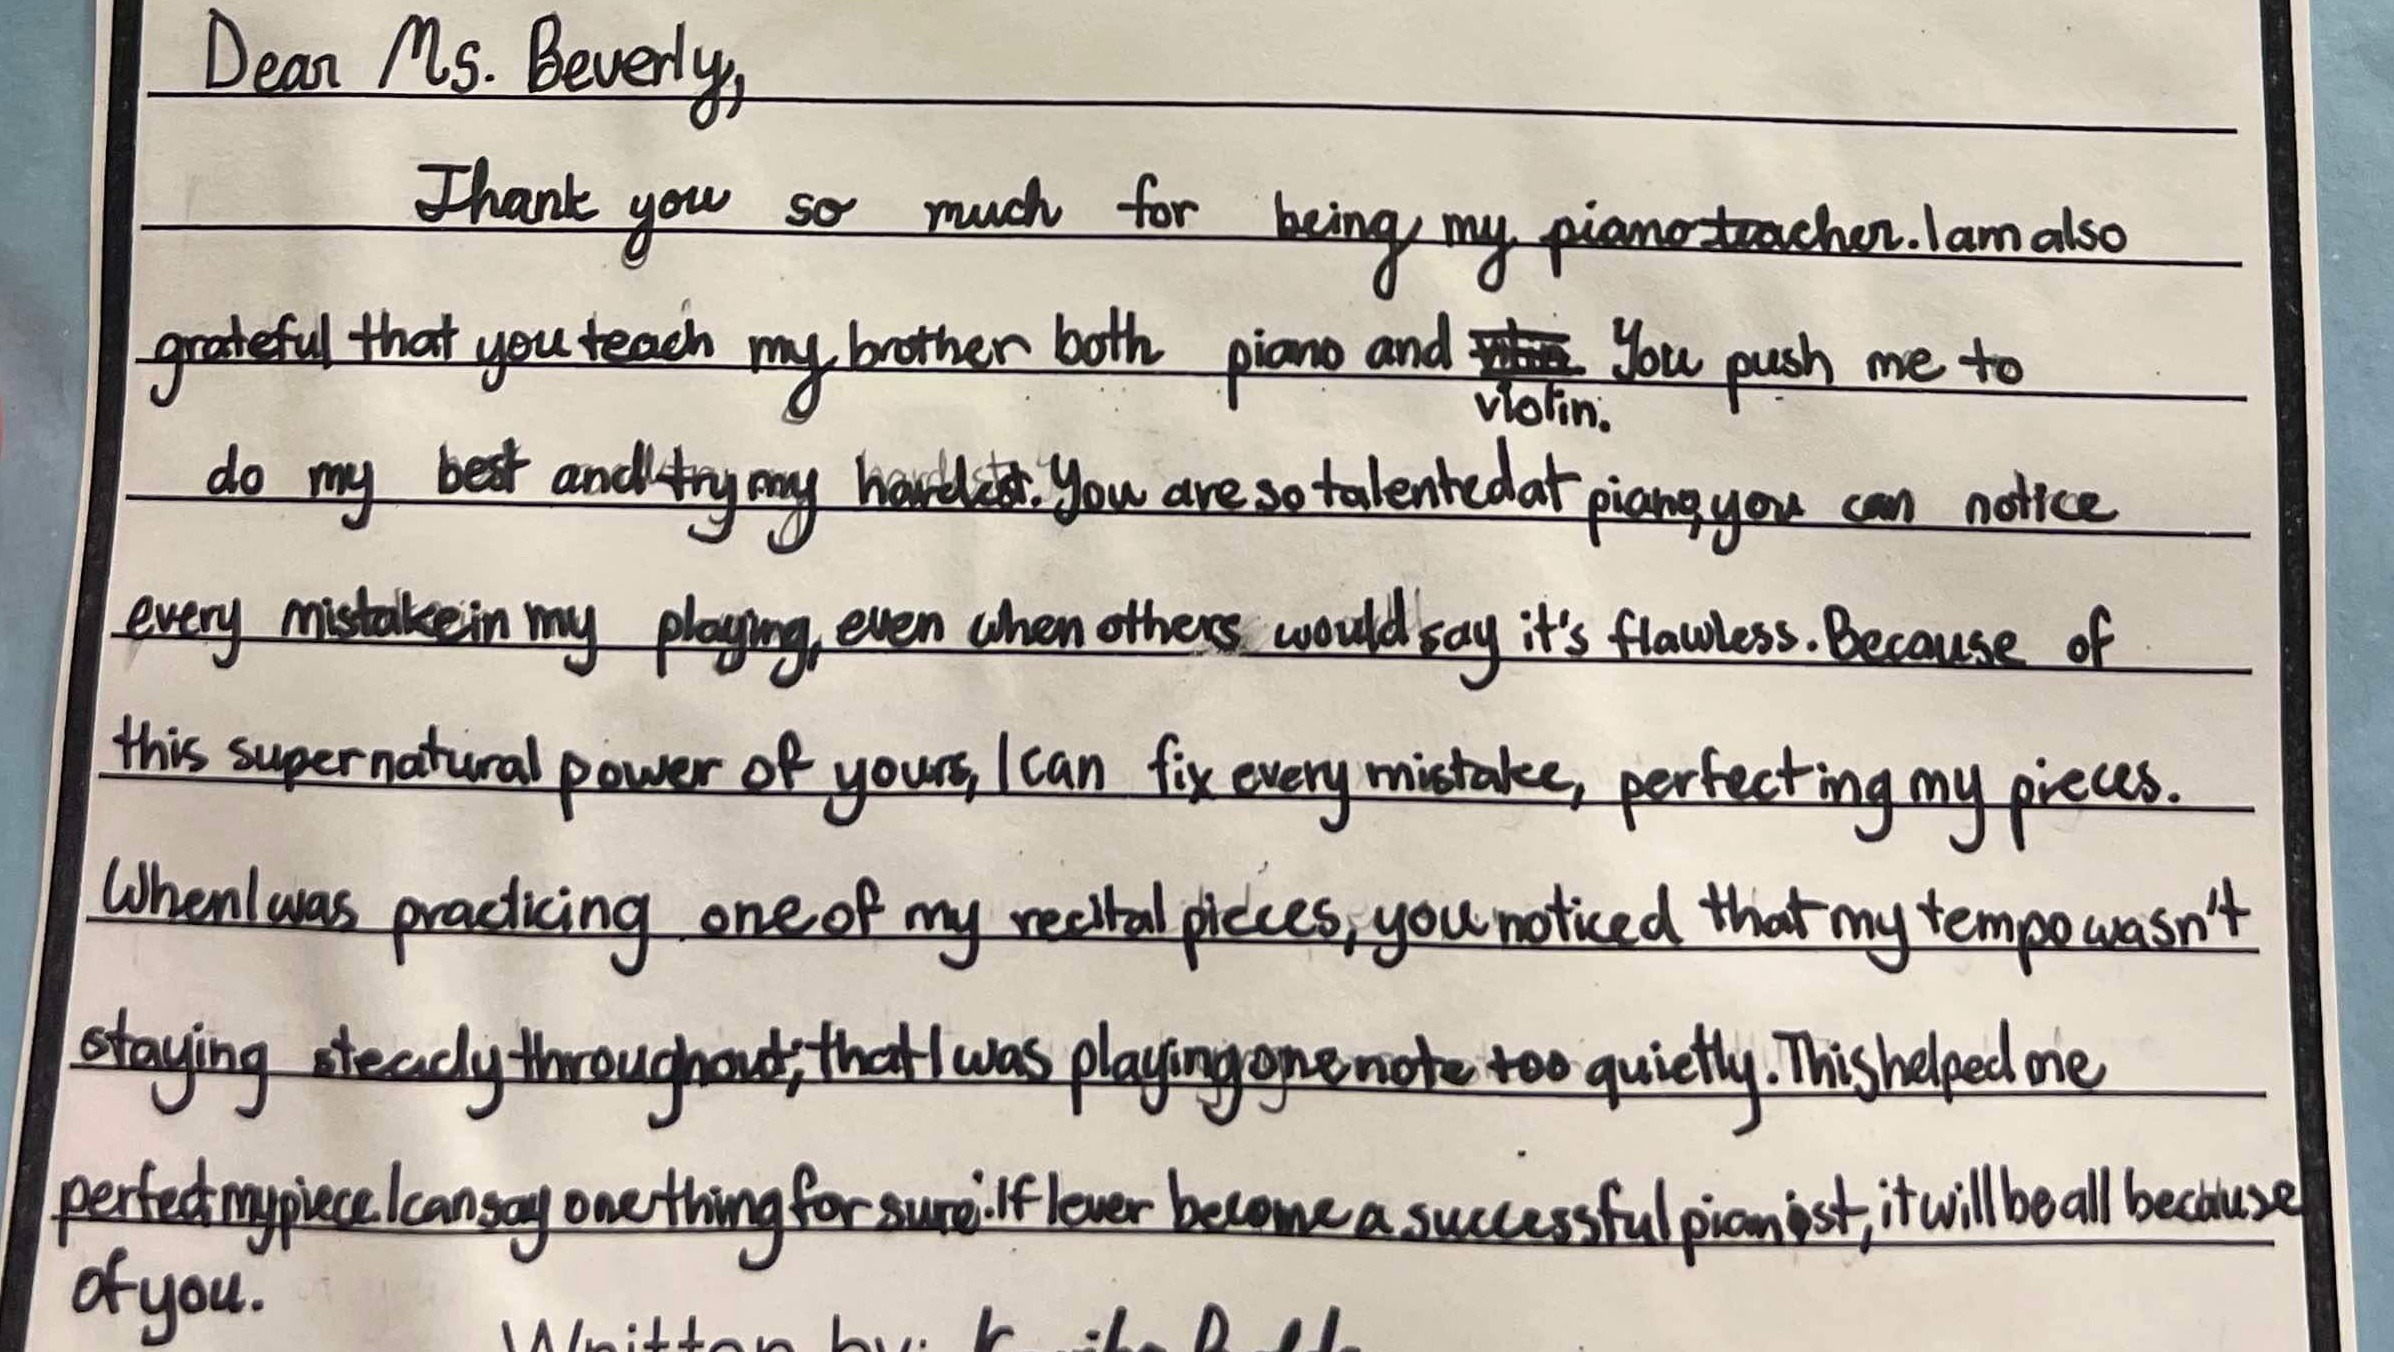 Dear Ms. Beverly,
Thank you so much for being my piano teacher. I am also
grateful that you teach my brother both piano and violin. You push me to
do my best and try my hardest. You are so talented at piano, you can notice
every mistake in my playing, even when others would say it's flawless. Because of
this supernatural power of yours, I can fix every mistake, perfecting my pieces.
When I was practicing one of my recital pieces, you noticed that my tempo wasn't
staying steady throughout; that I was playing one note too quietly. This helped me
perfect my piece. I can say one thing for sure: If I ever become a successful pianist, it will be all because
of you.
Written by: